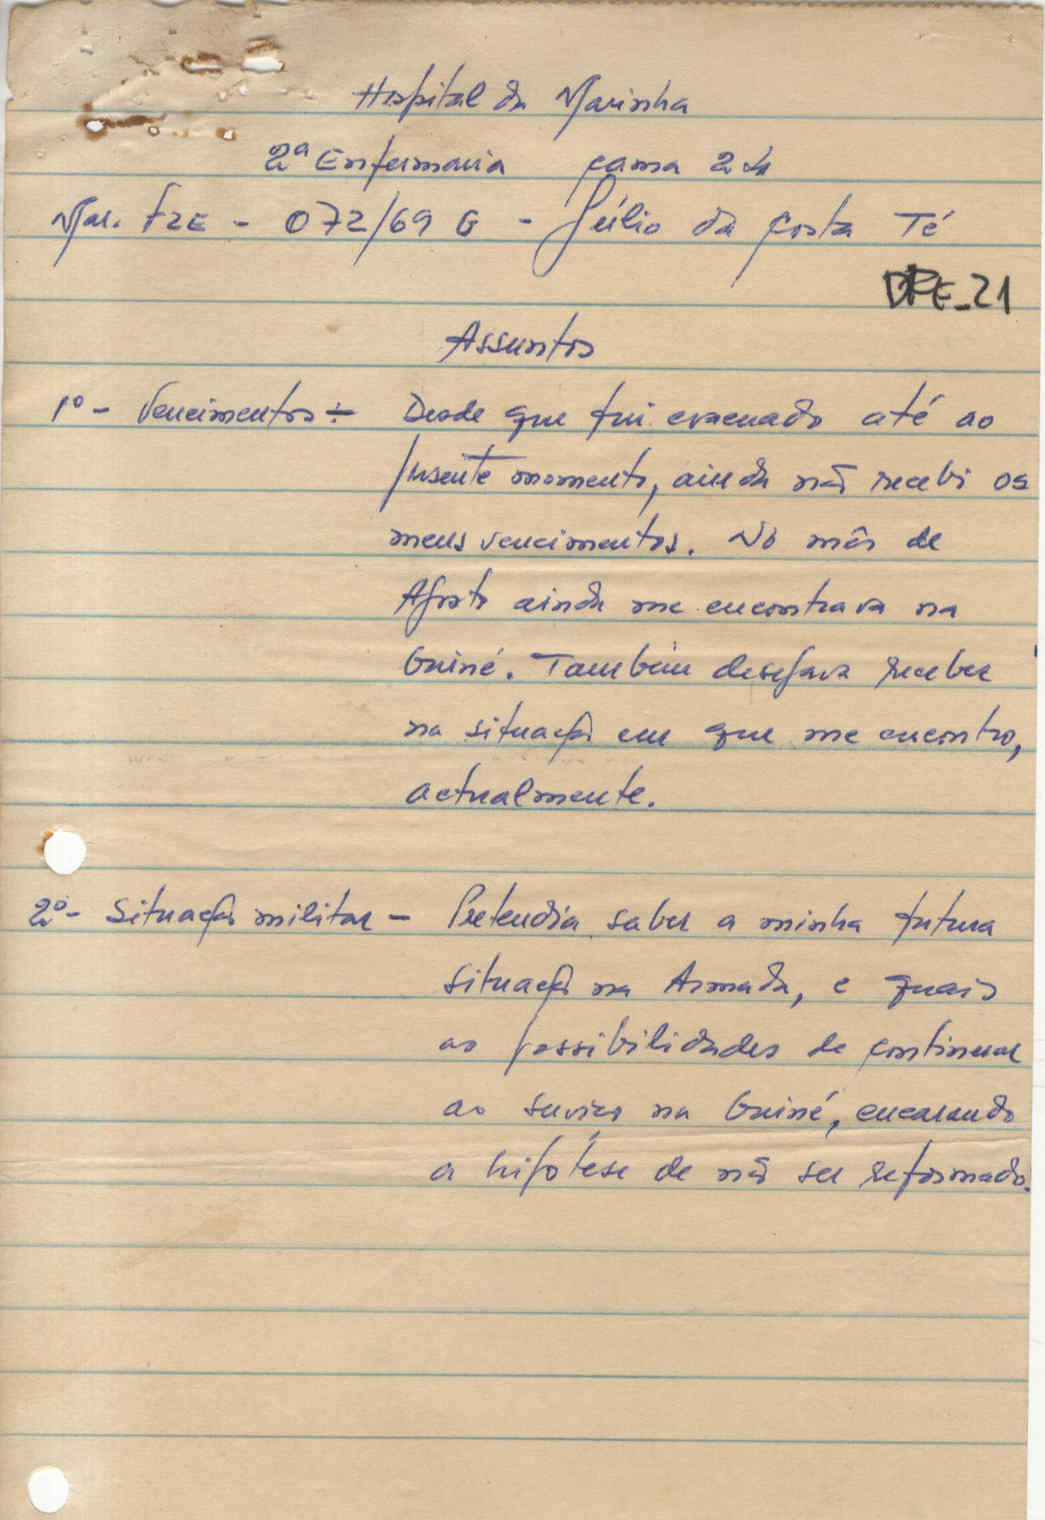 Hospital da Marinha
2ª Enfermaria cama 24
Mar. FZE - 072/69 G - Júlio da Costa Té
DFE-21
Assuntos
1º - Vencimentos ÷ Desde que fui evacuado até ao
presente momento, ainda não recebi os
meus vencimentos. No mês de
Agosto ainda me encontrava na
Guiné. Também desejava receber
na situação em que me encontro,
actualmente.
2º - Situação militar - Pretendia saber a minha futura
situação na Armada, e quais
as possibilidades de continuar
ao serviço na Guiné, encarando
a hipótese de não ser reformado.